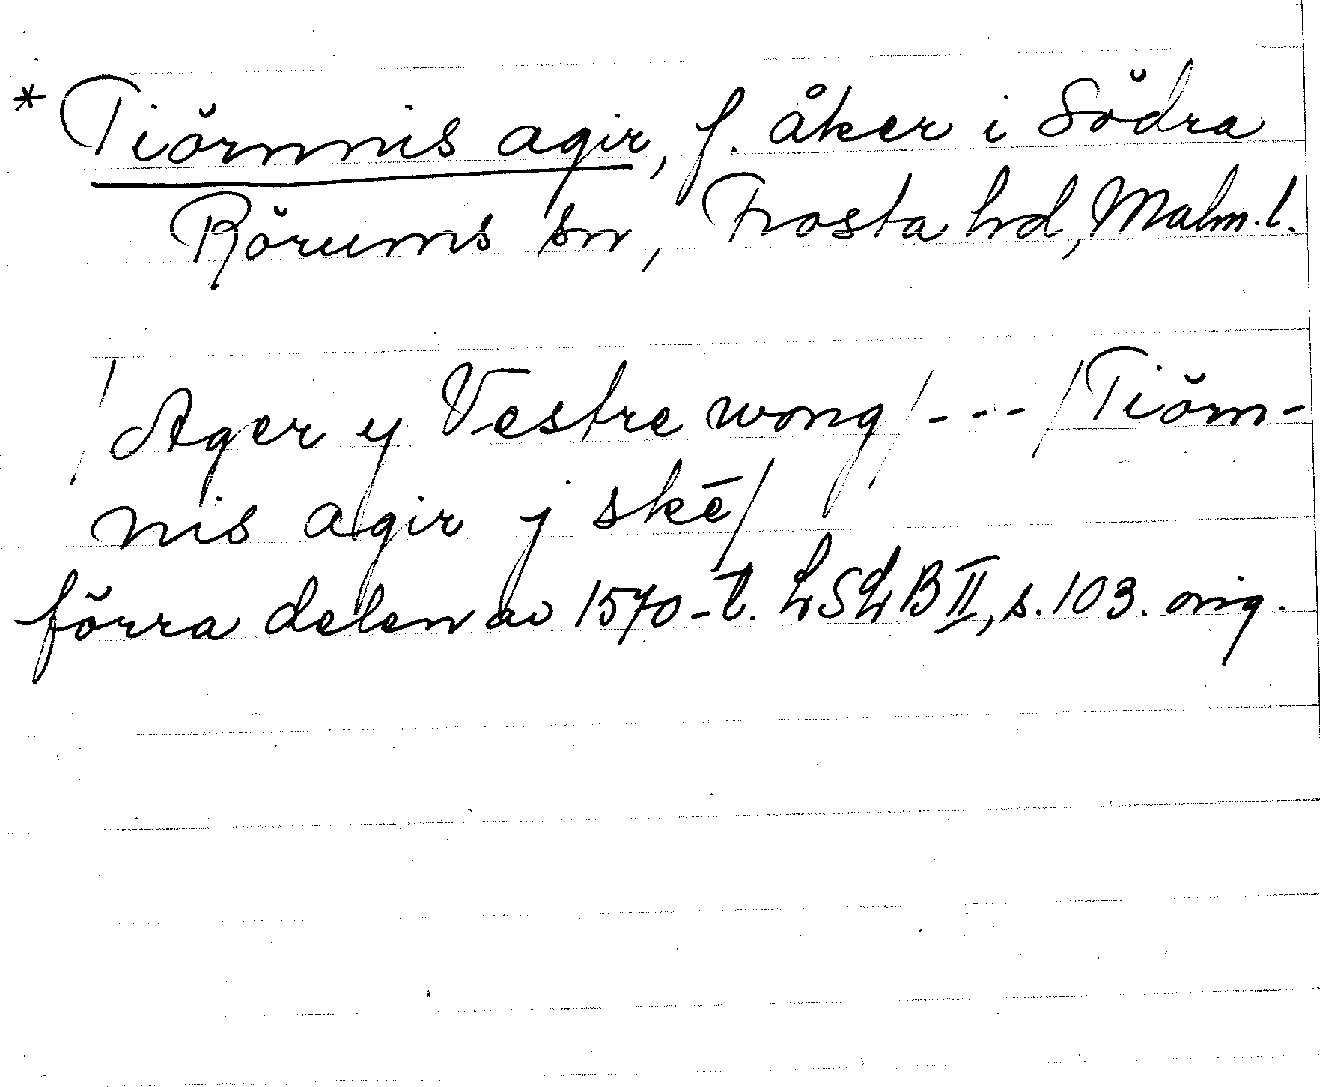 * Tiörnnis agir, f. åker i Södra
Rörums sn, Frosta hd, Malm.l.
/Ager y Vestre wong/---/Tiörn-
nis agir j skē/
förra delen av 1570-t. LSLB II, s. 103. orig.